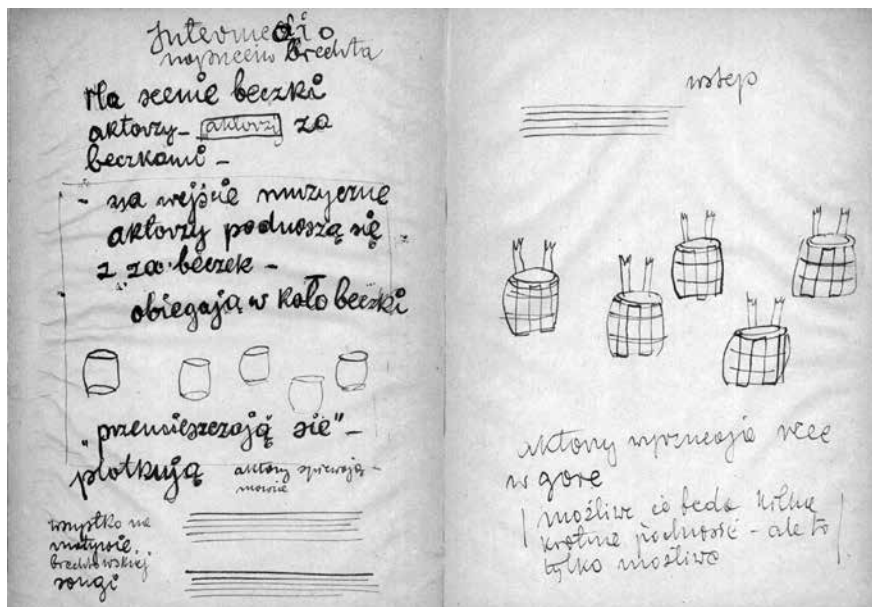 Intermedio
naprzeciw Brechta
Na scenie beczki
aktorzy – aktorzy za
beczkami –
- na wejście muzyczne
aktorzy podnoszą się
z za beczek –
obiegają w koło beczki
„przemieszczają się” –
plotkują
aktorzy śpiewają –
mówią
wszystko na
motywie
brechtowskiej
songi
wstęp
aktorzy wyrzucają ręce
w góre
możliwe co będą kilka
krotnie podnosić – ale to
tylko możliwe